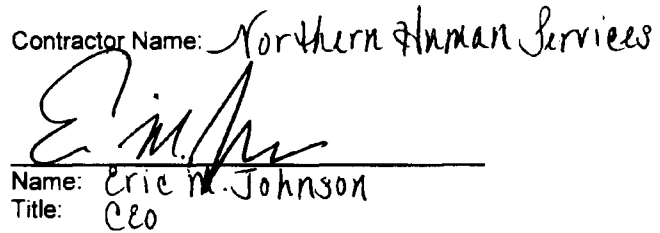 Contractor Name: Northern Human Services
E. M. J
Name: Eric M. Johnson
Title: CEO